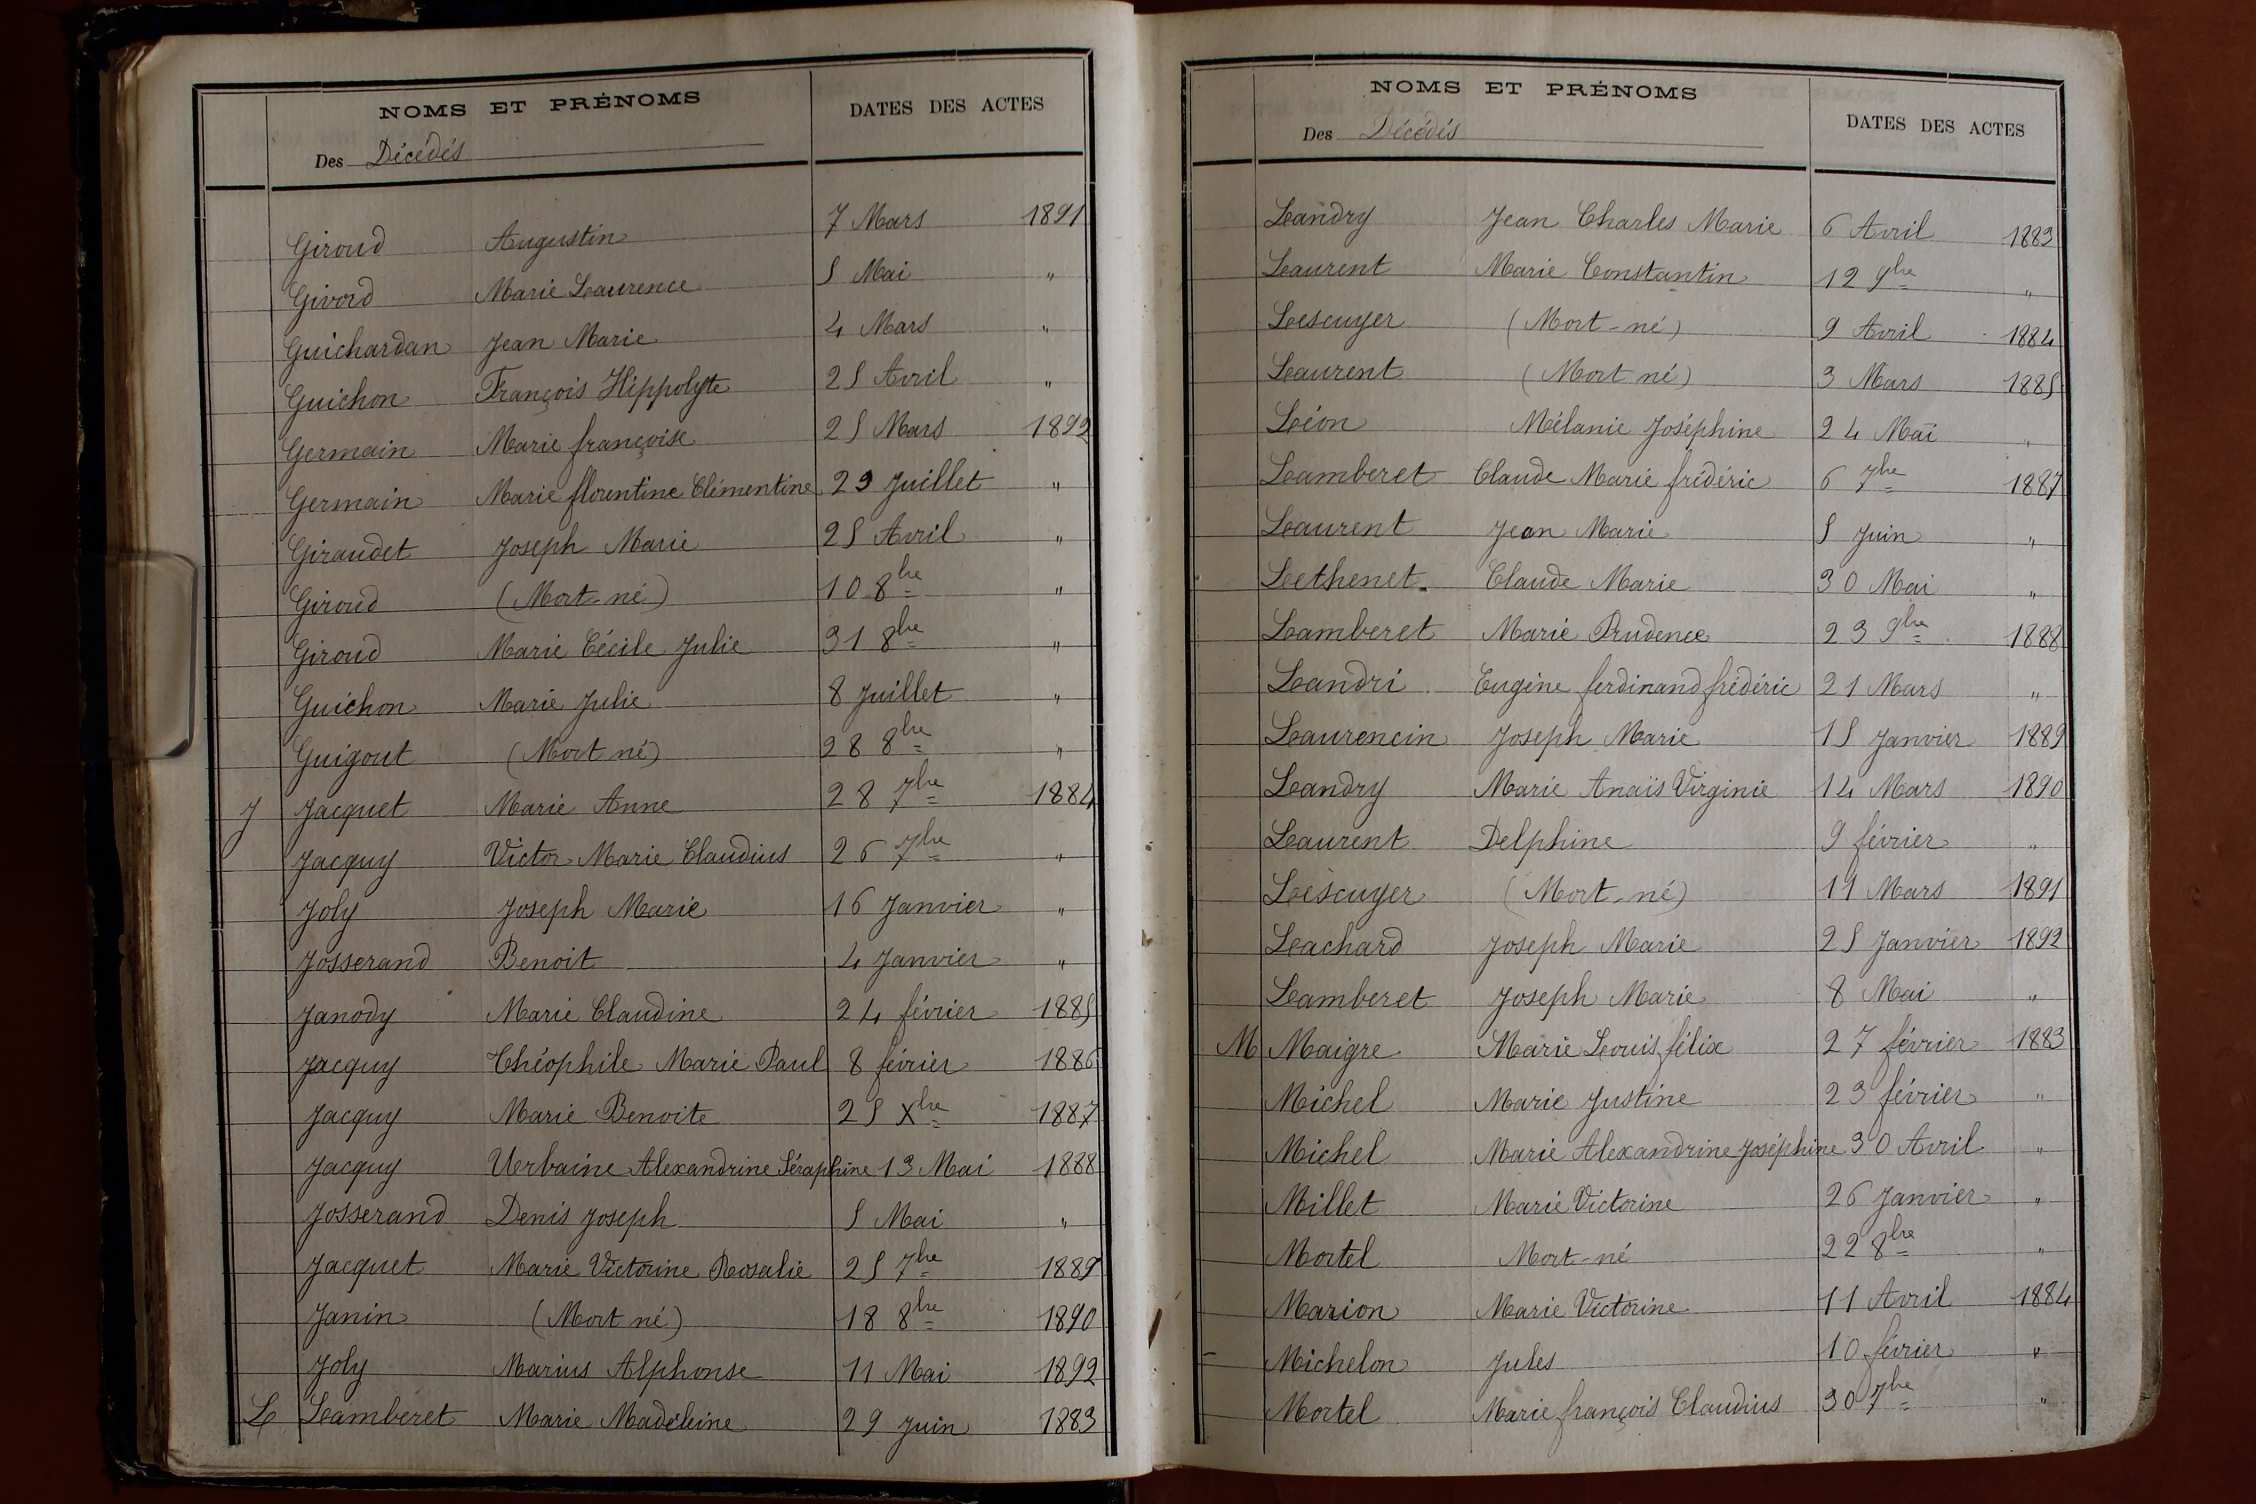 NOMS ET PRÉNOMS DATES DES ACTES
Des Décédés
Giroud Augustin 7 Mars 1891
Givord Marie Laurence 5 Mai "
Guichardan Jean Marie 4 Mars "
Guichon François Hippolyte 25 Avril "
Germain Marie françoise 25 Mars 1892
Germain Marie florentine Clémentine 23 Juillet "
Giraudet Joseph Marie 25 Avril "
Giroud (Mort-né) 10 8bre "
Giroud Marie Cécile Julie 31 8bre "
Guichon Marie Julie 8 Juillet "
Guigout (Mort né) 28 8bre "
J Jacquet Marie Anne 28 7bre 1884
Jacquy Victor Marie Claudius 26 7bre "
Joly Joseph Marie 16 Janvier "
Josserand Benoit 4 Janvier "
Janody Marie Claudine 24 février 1885
Jacquy Théophile Marie Paul 8 février 1886
Jacquy Marie Benoite 25 Xbre 1887
Jacquy Urbaine Alexandrine Séraphine 13 Mai 1888
Josserand Denis Joseph 5 Mai "
Jacquet Marie Victorine Rosalie 25 7bre 1889
Janin (Mort né) 18 8bre 1890
Joly Marius Alphonse 11 Mai 1892
L Lamberet Marie Madeleine 29 Juin 1883
NOMS ET PRÉNOMS DATES DES ACTES
Des Décédés
Landry Jean Charles Marie 6 Avril 1883
Laurent Marie Constantin 12 9bre "
Lescuyer (Mort-né) 9 Avril 1884
Laurent (Mort né) 3 Mars 1885
Léon Mélanie Joséphine 24 Mai "
Lamberet Claude Marie frédéric 6 7bre 1887
Laurent Jean Marie 5 Juin "
Lethenet Claude Marie 30 Mai "
Lamberet Marie Prudence 23 9bre 1888
Landri Eugène ferdinand frédéric 21 Mars "
Laurencin Joseph Marie 15 Janvier 1889
Landry Marie Anaïs Virginie 14 Mars 1890
Laurent Delphine 9 février "
Lescuyer (Mort-né) 11 Mars 1891
Lachard Joseph Marie 25 Janvier 1892
Lamberet Joseph Marie 8 Mai "
M Maigre Marie Louis félix 27 février 1883
Michel Marie Justine 23 février "
Michel Marie Alexandrine Joséphine 30 Avril "
Millet Marie Victorine 26 Janvier "
Mortel Mort-né 22 8bre "
Marion Marie Victorine 11 Avril 1884
Michelon Jules 10 février "
Mortel Marie françois Claudius 30 7bre "